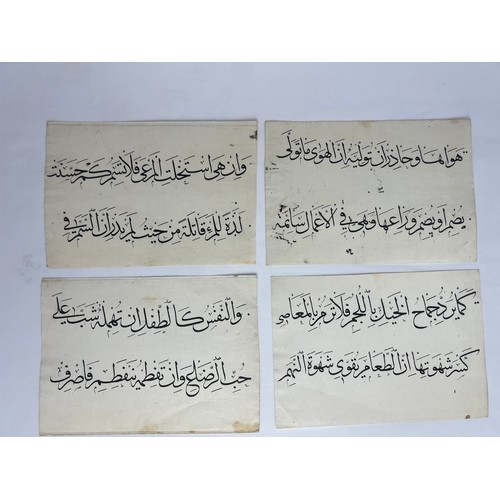 هواها وحاذر ان توليه ان الهوى ما تولى
يصم او يصم وراعها وهي في الاعمال سائمة
وان هي استحلت المرعى فلا تسم كم حسنت
لذة للمرء قاتلة من حيث لم يدر ان السم في
كما يرد جماح الخيل باللجم فلا ترم بالمعاصي
كسر شهوتها ان الطعام يقوي شهوة النهم
والنفس كالطفل ان تهمله شب على
حب الرضاع وان تفطمه ينفطم فاصرف